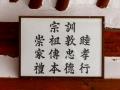 宗訓
崇祖敦睦
家傳忠孝
禮本德行